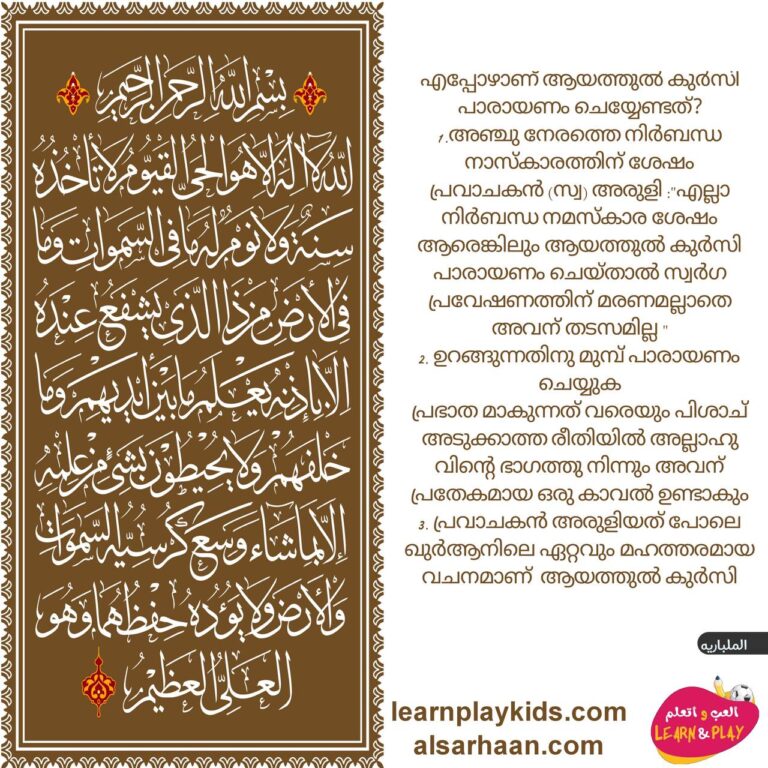 بسم الله الرحمن الرحيم
الله لا إله إلا هو الحي القيوم لا تأخذه
سنة ولا نوم له ما في السموات وما
في الأرض من ذا الذي يشفع عنده
إلا بإذنه يعلم ما بين أيديهم وما
خلفهم ولا يحيطون بشيء من علمه
إلا بما شاء وسع كرسيه السموات
والأرض ولا يؤده حفظهما وهو
العلي العظيم
എപ്പോഴാണ് ആയത്തുൽ കുർസി
പാരായണം ചെയ്യേണ്ടത്?
1.അഞ്ചു നേരത്തെ നിർബന്ധ
നാസ്കാരത്തിന് ശേഷം
പ്രവാചകൻ (സ്വ) അരുളി :"എല്ലാ
നിർബന്ധ നമസ്കാര ശേഷം
ആരെങ്കിലും ആയത്തുൽ കുർസി
പാരായണം ചെയ്താൽ സ്വർഗ
പ്രവേഷണത്തിന് മരണമല്ലാതെ
അവന് തടസമില്ല "
2. ഉറങ്ങുന്നതിനു മുമ്പ് പാരായണം
ചെയ്യുക
പ്രഭാത മാകുന്നത് വരെയും പിശാച്
അടുക്കാത്ത രീതിയിൽ അല്ലാഹു
വിന്റെ ഭാഗത്തു നിന്നും അവന്
പ്രതേകമായ ഒരു കാവൽ ഉണ്ടാകും
3. പ്രവാചകൻ അരുളിയത് പോലെ
ഖുർആനിലെ ഏറ്റവും മഹത്തരമായ
വചനമാണ് ആയത്തുൽ കുർസി
المليباريه
learnplaykids.com
alsarhaan.com
العب و اتعلم
LEARN & PLAY